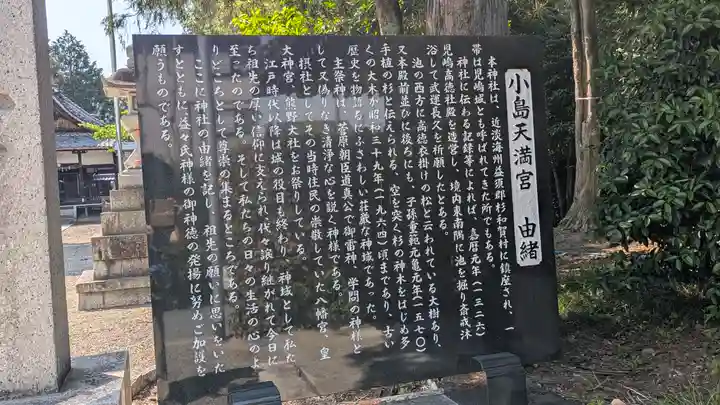 小島天満宮　由緒
本神社は、近淡海州益須郡杉和賀村に鎮座され、一
帯は児嶋城とも呼ばれてきた所でもある。
神社に伝わる記録等によれば、嘉暦元年（一三二六）
児嶋高徳社殿を造営し、境内東南隅に池を掘り斎戒沐
浴して武運長久を祈願したとある。
池の西方に高徳衣掛けの松と云われている大樹あり、
又本殿前並びに後ろにも、子孫重範元亀元年（一五七〇）
手植の杉と伝えられる、空を突く杉の神木をはじめ多
くの大木が昭和三十九年（一九六四）頃まであり、古い
歴史を物語るにふさわしい荘厳な神域であった。
主祭神は、菅原朝臣道真公で御雷神、学問の神様と
して又偽りなき清浄な心を説く神様である。
摂社としてその当時住民の崇敬していた八幡宮、皇
大神宮、熊野大社をお祭りしている。
江戸時代以降は城の役目も終わり、神域として私た
ち祖先の厚い信仰に支えられ代々譲り継がれて今日に
至ったのである。そして私たちの日々の生活の心のよ
りどころとして尊崇の集まるところである。
ここに神社の由緒を記し、祖先の願いに思いをいた
すとともに、益々氏神様の御神徳の発揚に努めご加護を
願うものである。